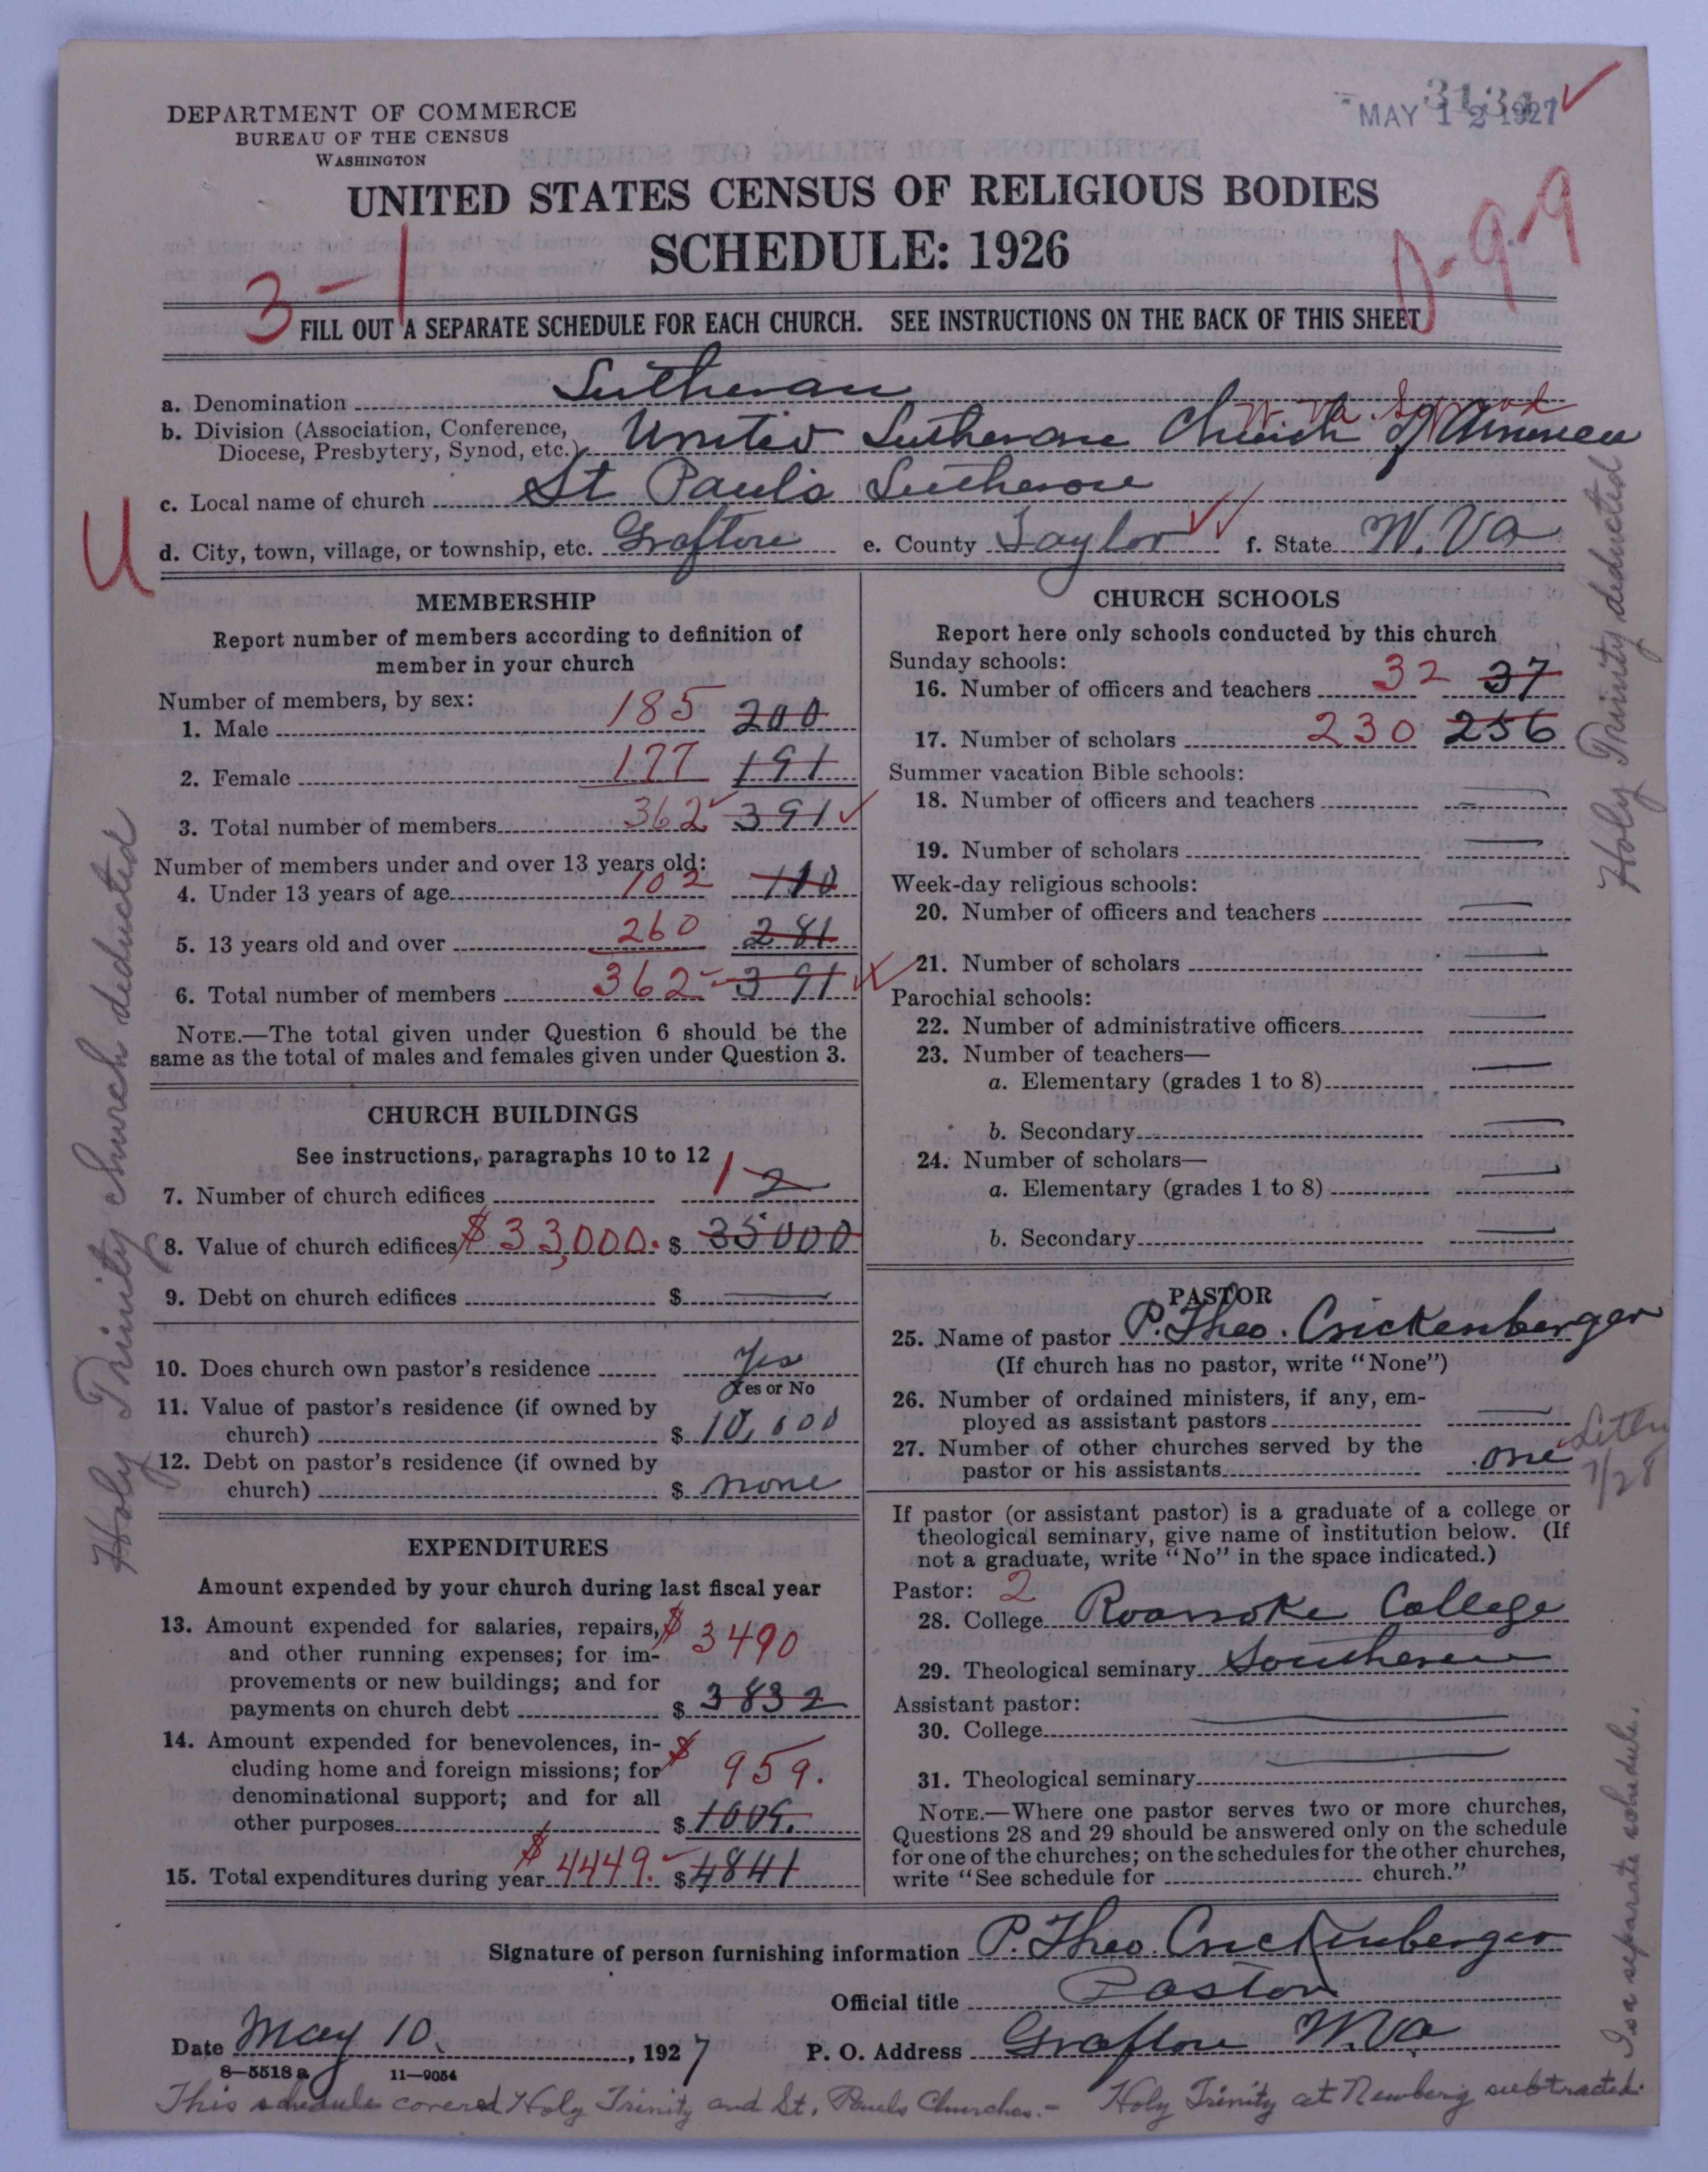 DEPARTMENT OF COMMERCE
BUREAU OF THE CENSUS
WASHINGTON
MAY 12 1927
UNITED STATES CENSUS OF RELIGIOUS BODIES
SCHEDULE: 1926
3-1
FILL OUT A SEPARATE SCHEDULE FOR EACH CHURCH. SEE INSTRUCTIONS ON THE BACK OF THIS SHEET
a. Denomination Lutheran
W. Va. Synod
b. Division (Association, Conference, Diocese, Presbytery, Synod, etc.) United Lutheran Church of America
c. Local name of church St Pauls Lutheran
U
d. City, town, village, or township, etc. Grafton e. County Taylor f. State W. Va
MEMBERSHIP
Report number of members according to definition of
member in your church
Number of members, by sex:
1. Male 185 200
2. Female 177 191
3. Total number of members 362 391
Number of members under and over 13 years old:
4. Under 13 years of age 102 110
5. 13 years old and over 260 281
6. Total number of members 362 391
NOTE.—The total given under Question 6 should be the
same as the total of males and females given under Question 3.
CHURCH BUILDINGS
See instructions, paragraphs 10 to 12
7. Number of church edifices 1 2
8. Value of church edifices $33,000. $ 35000
9. Debt on church edifices $
10. Does church own pastor's residence Yes
Yes or No
11. Value of pastor's residence (if owned by
church) $ 10,000
12. Debt on pastor's residence (if owned by
church) $ none
EXPENDITURES
Amount expended by your church during last fiscal year
13. Amount expended for salaries, repairs, $ 3490
and other running expenses; for im-
provements or new buildings; and for
payments on church debt $ 3832
14. Amount expended for benevolences, in- $
cluding home and foreign missions; for 959.
denominational support; and for all
other purposes $ 1009.
15. Total expenditures during year $4449. $ 4841
CHURCH SCHOOLS
Report here only schools conducted by this church
Sunday schools:
16. Number of officers and teachers 32 37
17. Number of scholars 230 256
Summer vacation Bible schools:
18. Number of officers and teachers
19. Number of scholars
Week-day religious schools:
20. Number of officers and teachers
21. Number of scholars
Parochial schools:
22. Number of administrative officers
23. Number of teachers—
a. Elementary (grades 1 to 8)
b. Secondary
24. Number of scholars—
a. Elementary (grades 1 to 8)
b. Secondary
PASTOR
25. Name of pastor P. Theo. Crickenberger
(If church has no pastor, write "None")
26. Number of ordained ministers, if any, em-
ployed as assistant pastors
27. Number of other churches served by the
pastor or his assistants one
7/28
If pastor (or assistant pastor) is a graduate of a college or
theological seminary, give name of institution below. (If
not a graduate, write "No" in the space indicated.)
Pastor: 2
28. College Roanoke College
29. Theological seminary Southern
Assistant pastor:
30. College
31. Theological seminary
NOTE.—Where one pastor serves two or more churches,
Questions 28 and 29 should be answered only on the schedule
for one of the churches; on the schedules for the other churches,
write "See schedule for church."
Signature of person furnishing information P. Theo. Crickenberger
Official title Pastor
Date May 10, 1927 P. O. Address Grafton W. Va
8—5518 a 11—9054
This schedule covered Holy Trinity and St. Pauls Churches.- Holy Trinity at Newberg subtracted.
Is a separate schedule.
Holy Trinity church deducted
Holy Trinity deducted